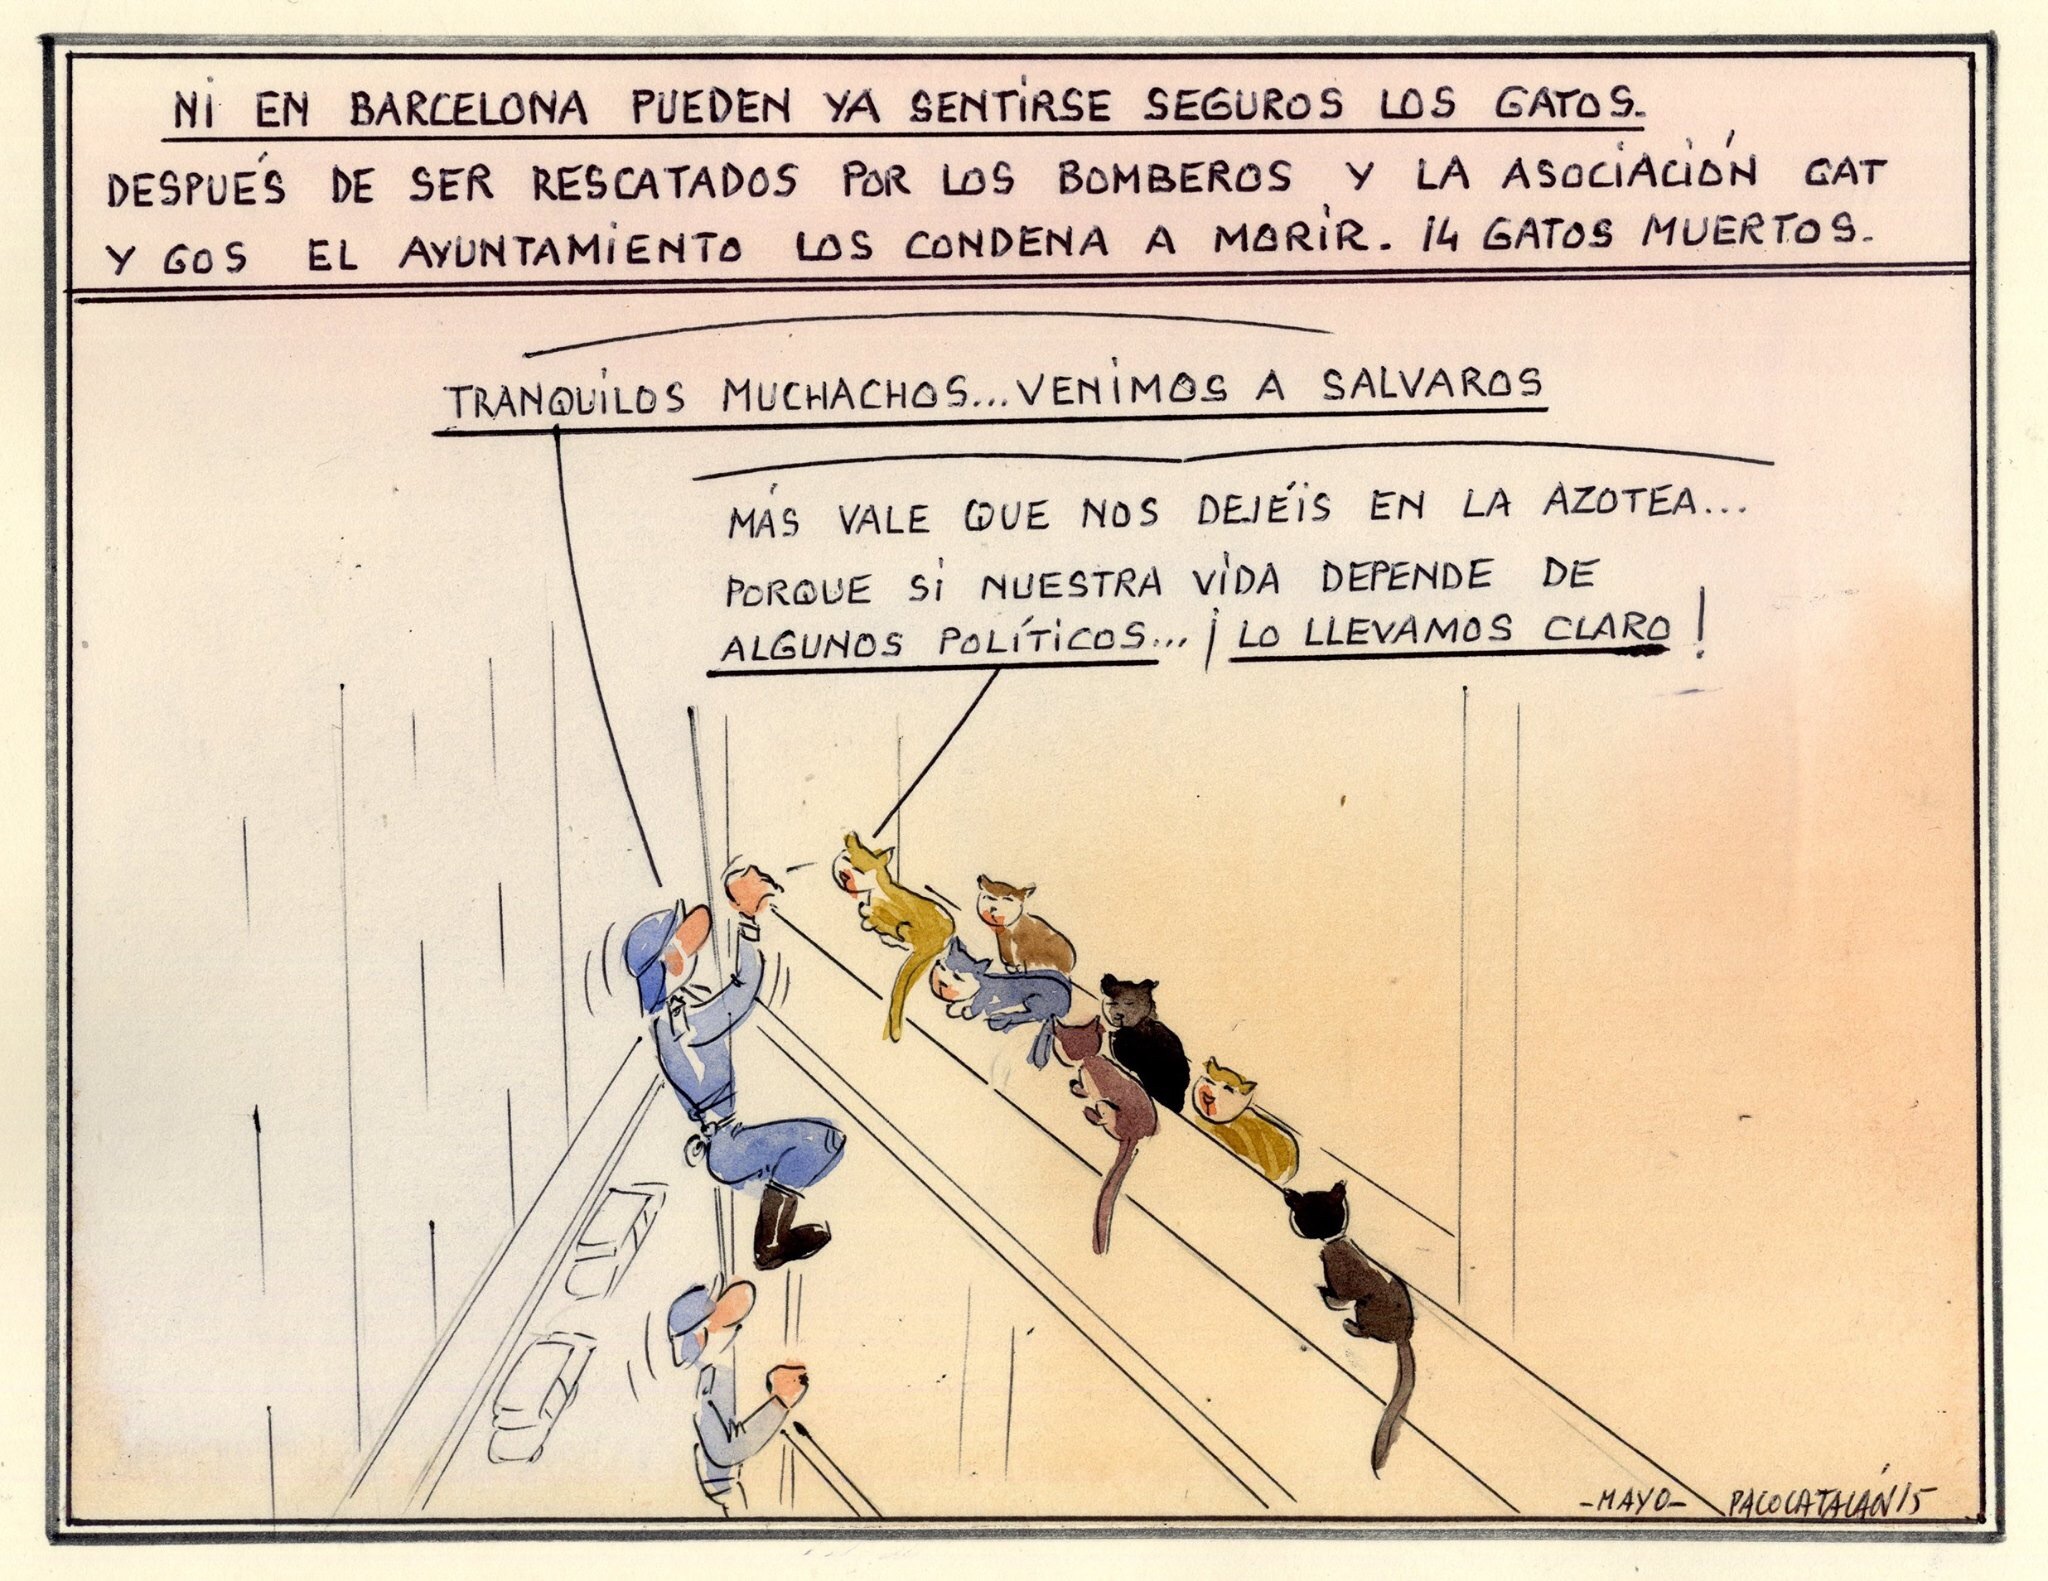 NI EN BARCELONA PUEDEN YA SENTIRSE SEGUROS LOS GATOS.
DESPUÉS DE SER RESCATADOS POR LOS BOMBEROS Y LA ASOCIACIÓN GAT
Y GOS EL AYUNTAMIENTO LOS CONDENA A MORIR. 14 GATOS MUERTOS.
TRANQUILOS MUCHACHOS... VENIMOS A SALVAROS
MÁS VALE QUE NOS DEJÉIS EN LA AZOTEA...
PORQUE SI NUESTRA VIDA DEPENDE DE
ALGUNOS POLÍTICOS... ¡LO LLEVAMOS CLARO!
-MAYO- PACOCATALÁN15